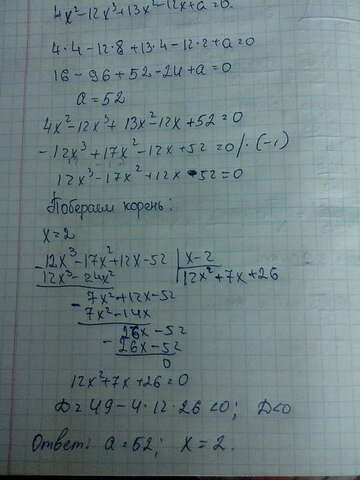 4x²-12x³+13x²-12x+a=0.
4·4-12·8+13·4-12·2+a=0
16-96+52-24+a=0
a=52
4x²-12x³+13x²-12x+52=0
-12x³+17x²-12x+52=0/·(-1)
12x³-17x²+12x-52=0
Подбераем корень:
x=2
12x³-17x²+12x-52 | x-2
12x³-24x² | 12x²+7x+26
7x²+12x-52
7x²-14x
26x-52
26x-52
0
12x²+7x+26=0
D=49-4·12·26<0; D<0
Ответ: a=52; x=2.